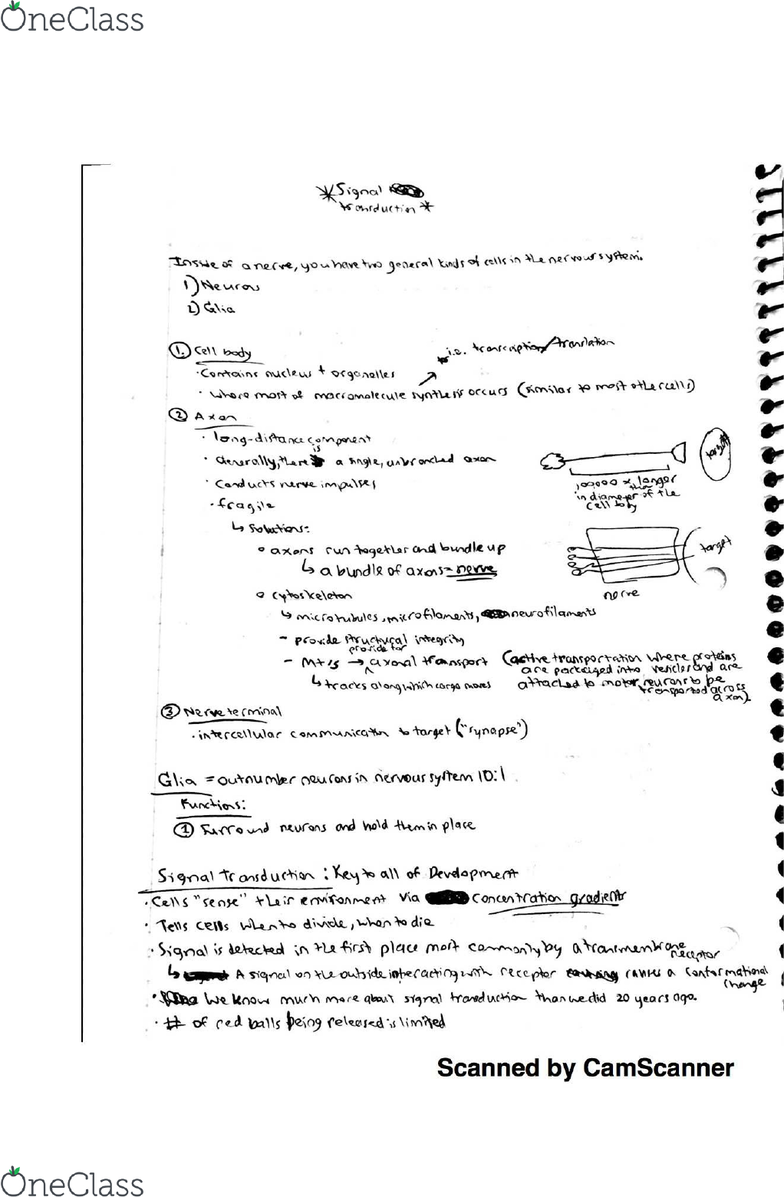 OneClass
*Signal
transduction*
Inside of a nerve, you have two general kinds of cells in the nervous system.
1) Neurons
2) Glia
1. Cell body
i.e. transcription/translation
· Contains nucleus + organelles
· Where most of macromolecule synthesis occurs (similar to most other cells)
2 Axon
· long-distance component
· Generally, there is a single, unbranched axon
· Conducts nerve impulses
· fragile
target
longer
in diameter of the
cell body
↳ Solutions:
axons run together and bundle up
↳ a bundle of axons = nerve
target
nerve
cytoskeleton
↳ microtubules, microfilaments, neurofilaments
- provide structural integrity
- MT's → provide for axonal transport (active transportation where proteins
are packaged into vesicles and are
↳ tracks along which cargo moves
attached to motor neurons to be
transported across
axon)
3 Nerve terminal
· intercellular communication to target ("synapse")
Glia = outnumber neurons in nervous system 10:1
Functions:
1 Surround neurons and hold them in place
Signal Transduction: Key to all of Development
· Cells "sense" their environment via concentration gradients
· Tells cells when to divide, when to die
· Signal is detected in the first place most commonly by a transmembrane
receptor
↳ A signal on the outside interacting with receptor causes a conformational
change
· We know much more about signal transduction than we did 20 years ago.
· # of red balls being released is limited
Scanned by CamScanner
OneClass